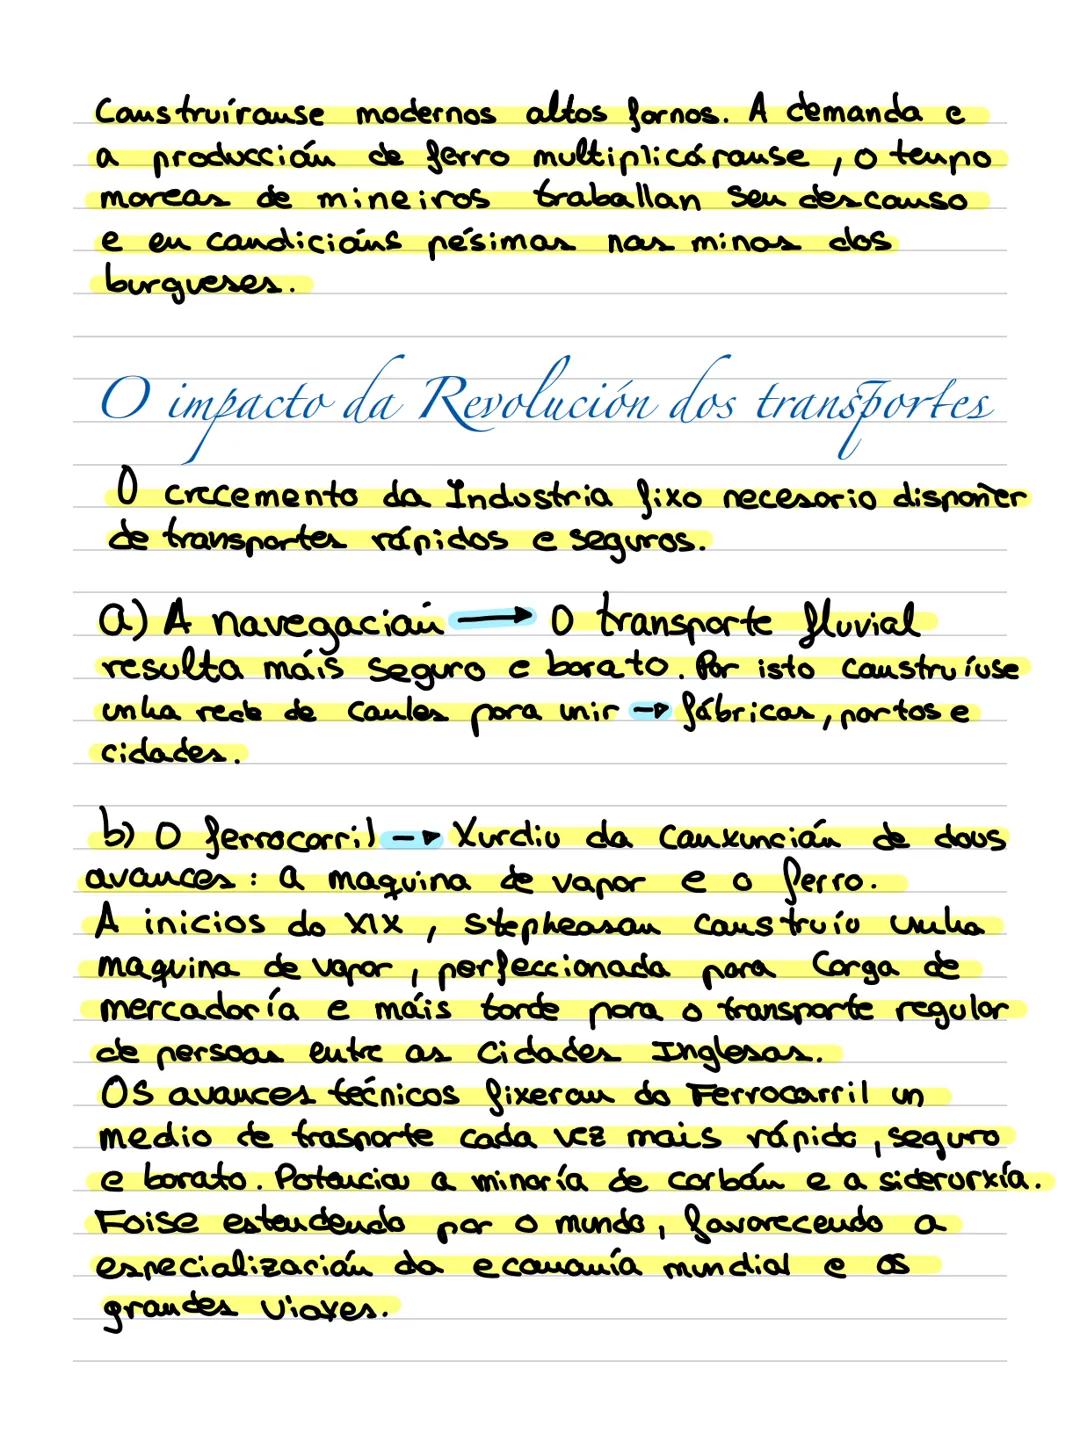 Construíronse modernos altos fornos. A demanda e
a producción de ferro multiplicáronse, o tempo
moreas de mineiros traballan sen descanso
e en condicións pésimas nas minas dos
burgueses.
O impacto da Revolución dos transportes
O crecemento da Industria fixo necesario dispoñer
de transportes rápidos e seguros.
a) A navegación → O transporte fluvial
resulta máis seguro e barato. Por isto construíuse
unha rede de canles para unir → fábricas, portos e
cidades.
b) O ferrocarril → Xurdiu da conxunción de dous
avances: a maquina de vapor e o ferro.
A inicios do XIX, Stepheason construío unha
maquina de vapor, perfeccionada para Carga de
mercadoría e máis tarde para o transporte regular
de persoas entre as Cidades Inglesas.
OS avances técnicos fixeron do Ferrocarril un
medio de trasporte cada vez mais rápido, seguro
e barato. Potenciou a minaría de carbón e a siderurxía.
Foise estendendo por o mundo, favorecendo a
especialización da economía mundial e os
grandes Viaxes.